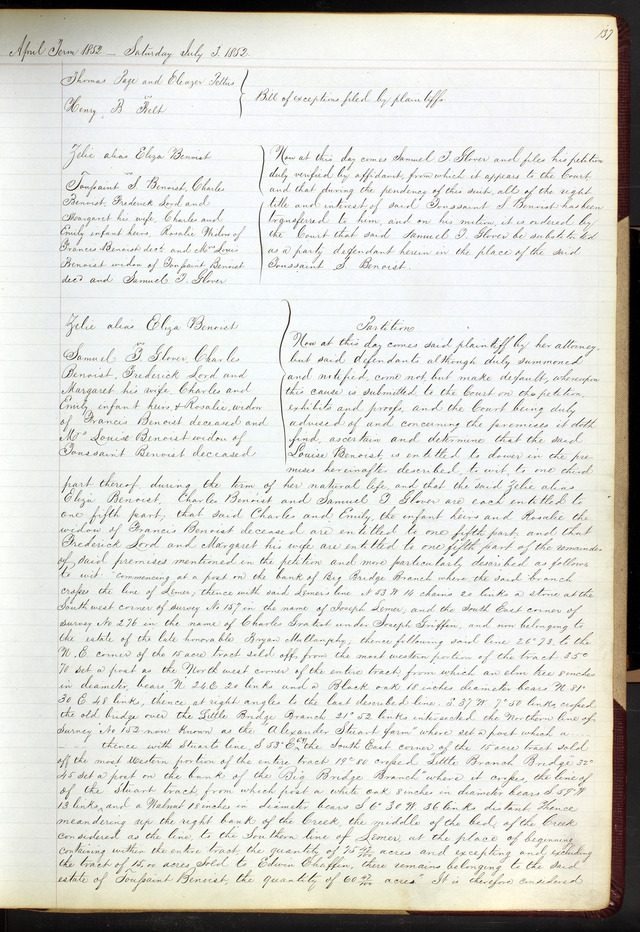 137
April Term 1852 — Saturday July 3. 1852.
Thomas Page and Eleazer Pettus
vs
Henry B Belt
Bill of exceptions filed by plaintiffs
Zelie alias Eliza Benoist
vs
Toussaint S Benoist, Charles
Benoist, Frederick Lord and
Margaret his wife, Charles and
Emily infant heirs, Rosalie Widow of
Francis Benoist decd. and Mrs Louise
Benoist widow of Toussaint Benoist
decd and Samuel T. Glover
Now at this day comes Samuel T. Glover and files his petition
duly verified by affidavit, from which it appears to the Court
and that during the pendency of this suit, all of the right
title and interest of said Toussaint S Benoist has been
transferred to him, and on his motion, it is ordered by
the Court that said Samuel T. Glover be substituted
as a party defendant herein in the place of the said
Toussaint S. Benoist.
Zelie alias Eliza Benoist
vs
Samuel T Glover, Charles
Benoist, Frederick Lord and
Margaret his wife, Charles and
Emily infant heirs, & Rosalie, widow
of Francis Benoist deceased and
Mrs Louise Benoist widow of
Toussaint Benoist deceased
Partition
Now at this day comes said plaintiff by her attorney,
but said defendants although duly summoned
and notified, come not but make default, whereupon
this cause is submitted to the Court on the petition,
exhibits and proofs, and the Court being duly
advised of and concerning the premises it doth
find, ascertain and determine that the said
Louise Benoist, is entitled to dower in the pre-
mises hereinafter described, to wit, to one third
part thereof, during the term of her natural life, and that the said Zelie alias
Eliza Benoist, Charles Benoist and Samuel T. Glover are each entitled to
one fifth part, that said Charles and Emily, the infant heirs and Rosalie the
widow of Francis Benoist deceased are entitled to one fifth part, and that
Frederick Lord and Margaret his wife are entitled to one fifth part of the remainder
of said premises mentioned in the petition and more particularly described as follows
to wit: "commencing at a post on the bank of Big Bridge Branch where the said branch
crosses the line of Lemer, thence with said Lemers line N 53° W 14 chains 20 links a stone at the
Southwest corner of survey No 157 in the name of Joseph Lemer, and the South East corner of
survey No 276 in the name of Charles Gratiot under Joseph Griffin, and now belonging to
the estate of the late honorable Bryan Mullanphy, thence following said line 20° 73. to the
N. E corner of the 15 acre tract sold off, from the most western portion of the tract. 35°
70 set a post as the Northwest corner of the entire tract, from which an elm tree 8 inches
in diameter, bears N 24 E 20 links and a Black oak 18 inches diameter bears N 81°
30 E 48 links, thence at right angles to the last described line. S 37 W 7° 50 links, crossed
the old bridge over the Little Bridge Branch 21° 52 links intersected the Northern line of
Survey No 152 now known as the "Alexander Stuart farm" where set a post which a ....
.... thence with Stuarts line S 53° E, the South East corner of the 15 acre tract sold
off the most western portion of the entire tract 19° 80 crossed Little Branch Bridge 32°
45 set a post on the bank of the "Big Bridge Branch" where it crosses the line of
of the Stuart tract, from which post a white oak 8 inches in diameter bears S 59° W
13 links, and a Walnut 18 inches in diameter bears S 6° 30 W. 36 links distant. Thence
meandering up the right bank of the Creek, the middle of the bed, of the Creek
considered as the line, to the Southern line of Lemer, at the place of beginning
containing within the entire tract, the quantity of 75 47/100 acres and excepting and excluding
the tract of 15.00 acres, Sold to Edwin Chaffin, there remains belonging to the said
estate of Toussaint Benoist, the quantity of 60 47/100 acres" It is therefore considered